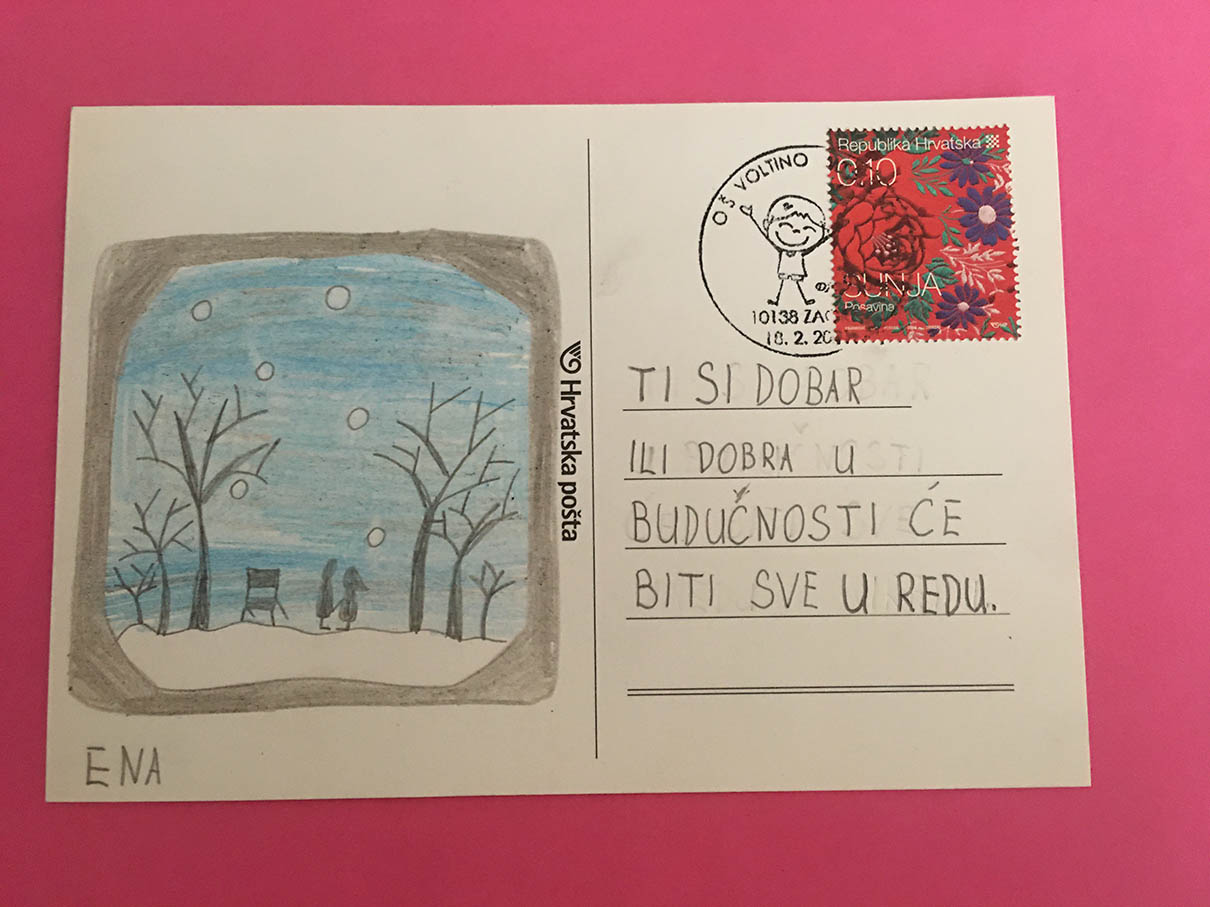 OŠ VOLTINO
10138 ZAG
18. 2. 20
Republika Hrvatska
0,10
SUNJA
Posavina
Hrvatska pošta
TI SI DOBAR
ILI DOBRA U
BUDUČNOSTI ĆE
BITI SVE U REDU.
ENA